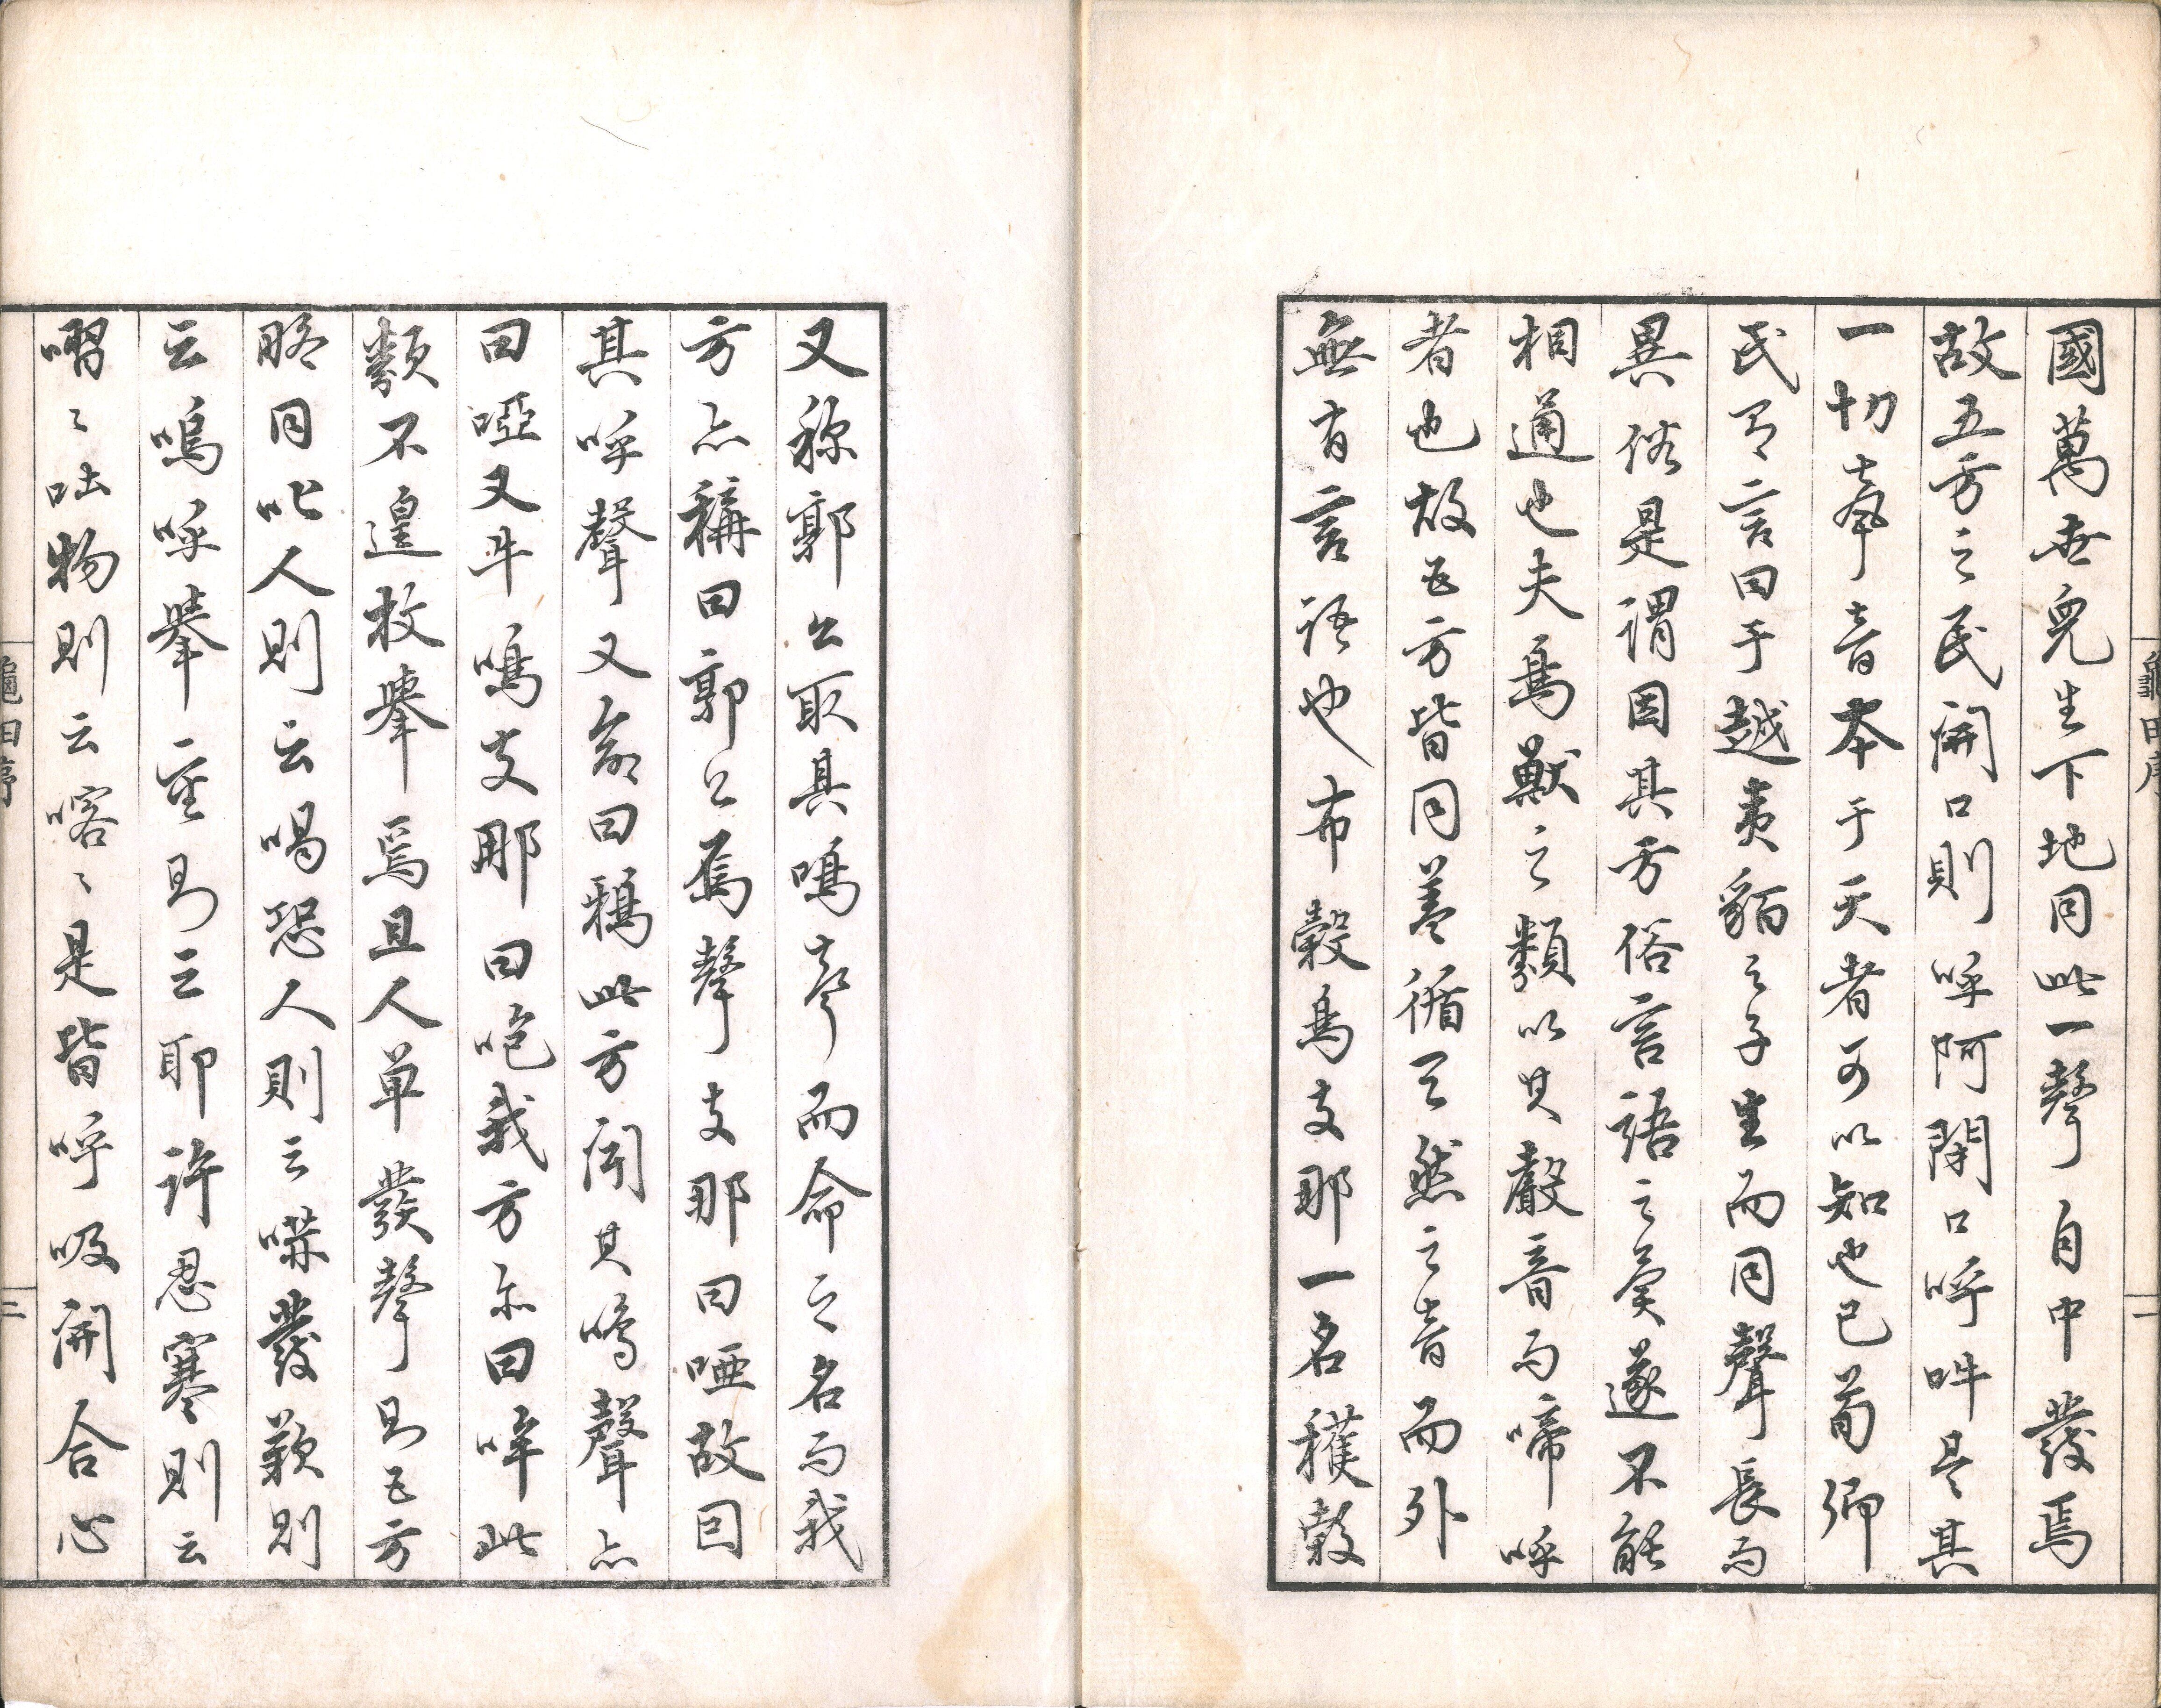 龜田序
二
國萬世兒生下地同此一聲自中發焉
故五方之民開口則呼阿閉口呼吽是其
一切聲音本于天者可以知也已荀卿
氏有言曰于越夷貊之子生而同聲長而
異俗是謂因其方俗言語之異遂不能
相通也夫鳥獸之類以其聲音而啼呼
者也故五方皆同蓋循天然之音而外
無有言語也布穀鳥支那一名穫穀
又称郭公取其鳴聲而命之名而我
方亦稱曰郭公烏聲支那曰啞故因
其呼聲又命曰鴉此方聞其鳴聲亦
曰啞又牛鳴支那曰吽我方亦曰哞此
類不遑枚擧焉且人単發聲則五方
脗同叱人則云喝恐人則云㗲發歎則
云嗚呼擧重則云耶許忍寒則云
嘐々吐物則云喀々是皆呼吸開合心
龜田序
二